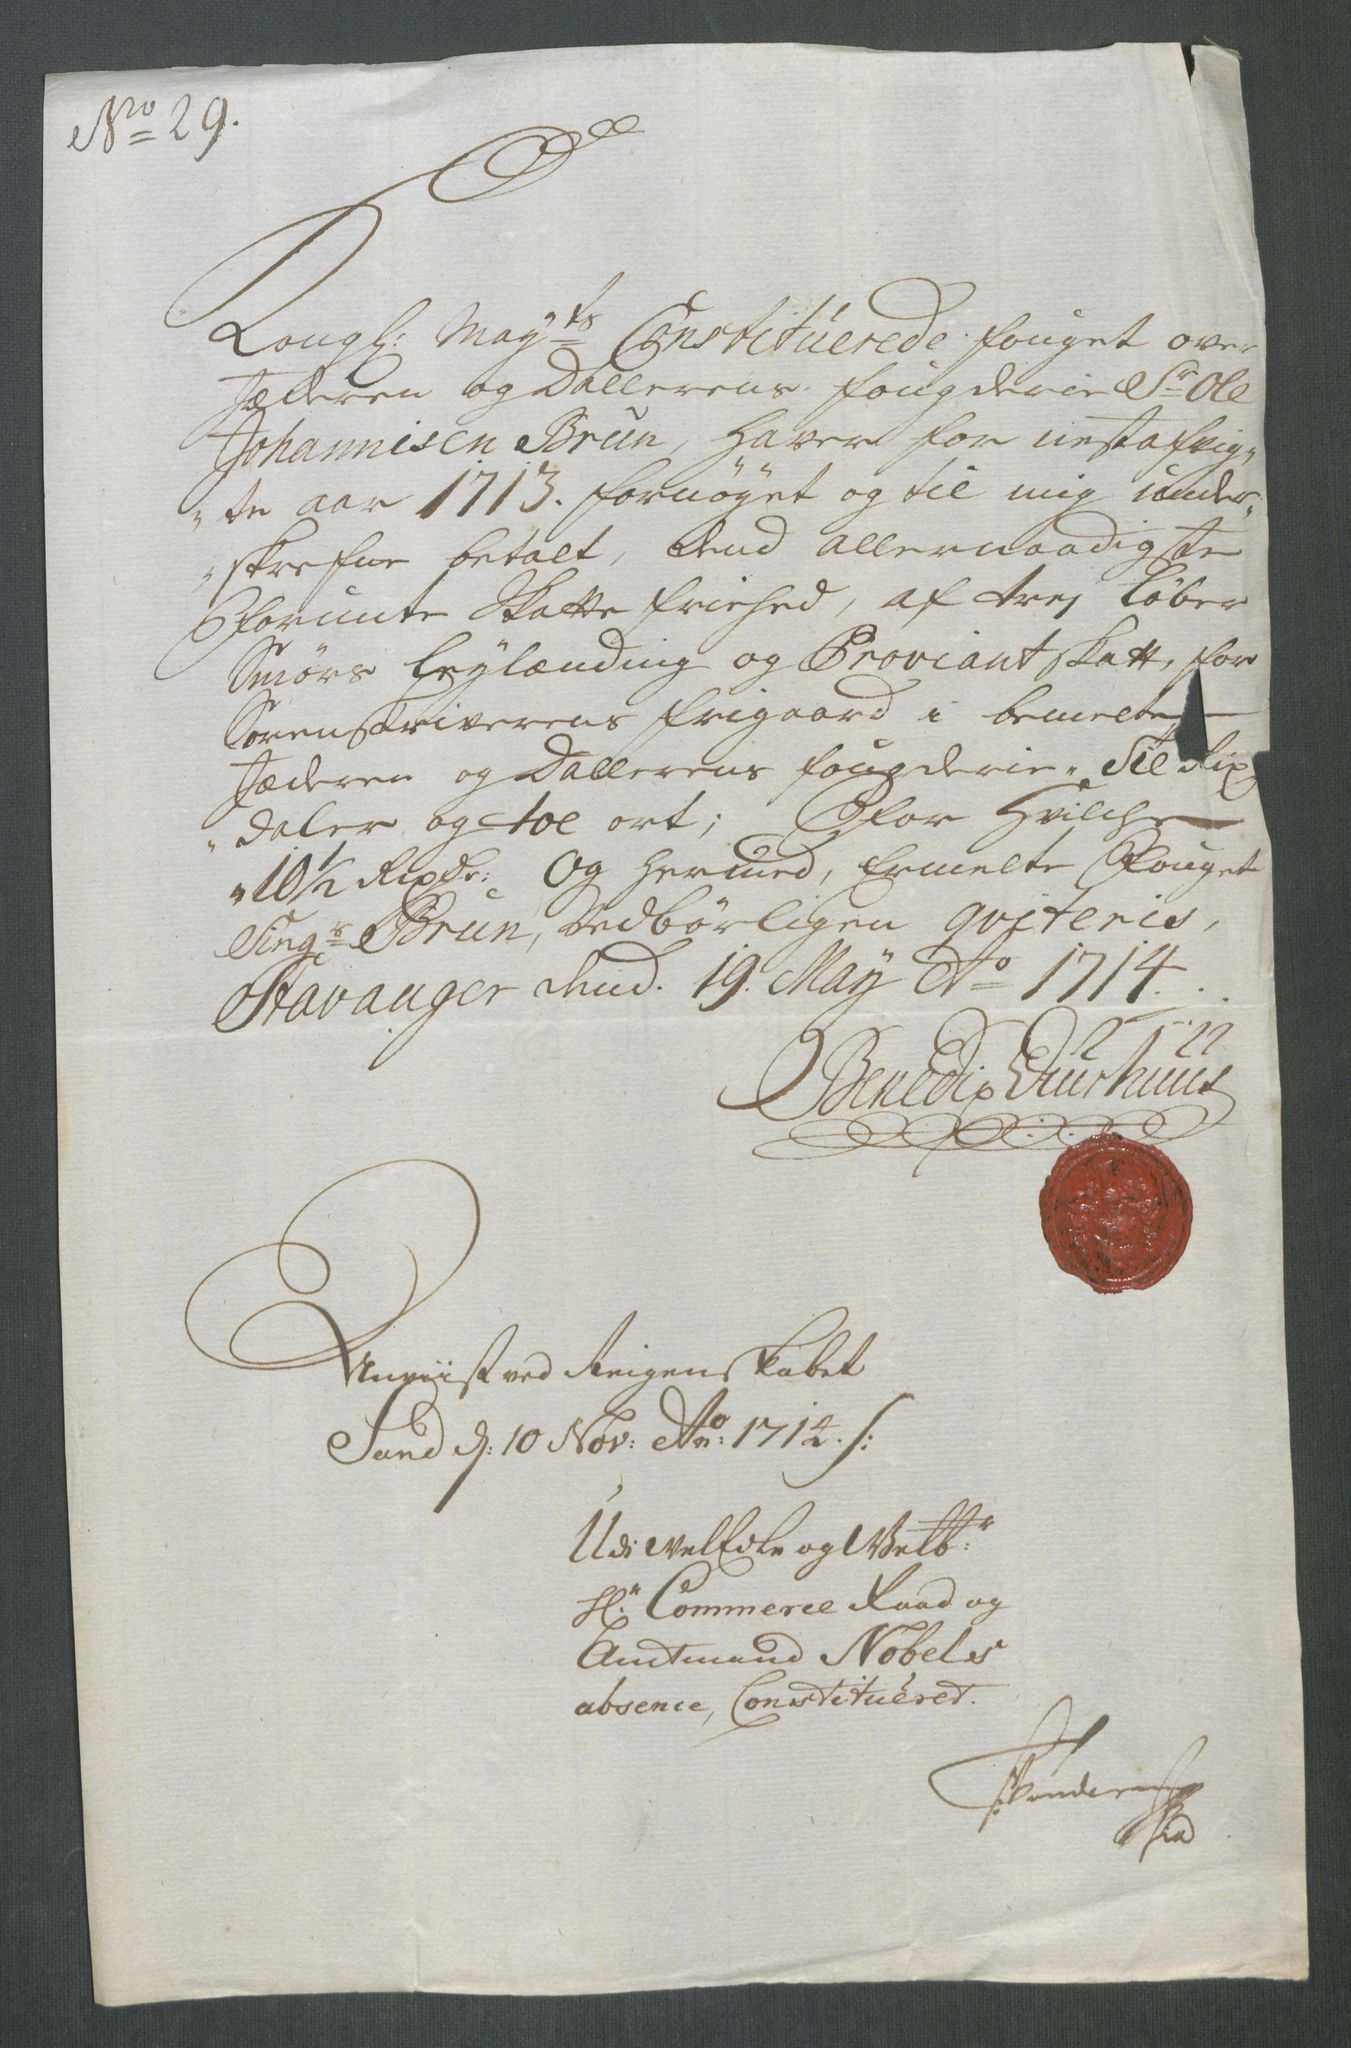 No 29.
Kongl: Mayts Constituerede fouget over
Jæderen og Dallerens fougderie Sr Ole
Johannisen Brun, haver for nestafvig-
te aar 1713. fornøyet og til mig under-
skrefne betalt, dend allernaadigste
Forunte Skatte friehed, af trej Løber
Smørs Leylænding og Proviant skatt, for
Sorenskriverens frigaard i bemelte
Jæderen og Dallerens fougderie, Tie Rix
daler og toe ort; For hvilche
10½ Rixdr: Og hermed, ermelte Fouget
Singr Brun, vedbørligen qviteris,
Stavanger dend. 19. May Ao 1714.
Benedix Duurhuus
Anviist ved Reigenskabet
Sand d: 10 Nov: Ao: 1714.
Udi Velædle og Velbr:
Hr Commerce Raad og
Amtmand Nobels
absence, Constitueret.